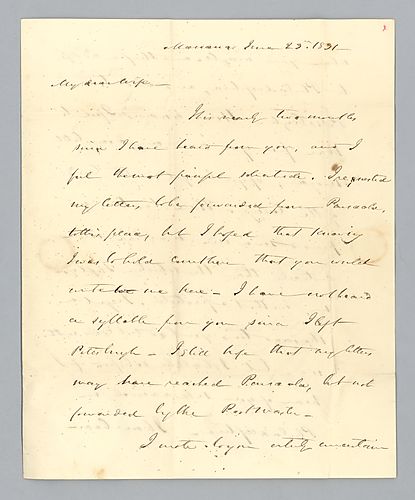 Marianna June 25th 1831
My dear wife
It is nearly two months
since I have heard from you, and I
feel the most painful solicitude. I requested
my letters to be forwarded from Pensacola,
to this place, but I hoped that knowing
I was to hold court here that you would
write to me here - I have not heard
a syllable from you since I left
Pittsburgh - I still hope that my letters
may have reached Pensacola, but not
forwarded by the Postmaster -
I wrote to you entirely uncertain